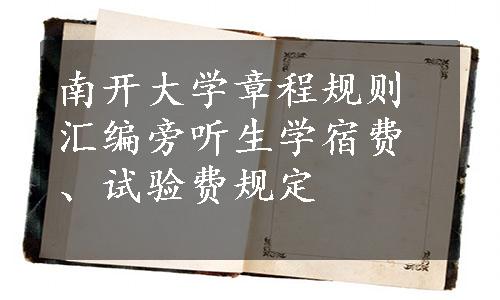 南开大学章程规则
汇编旁听生学宿费
、试验费规定